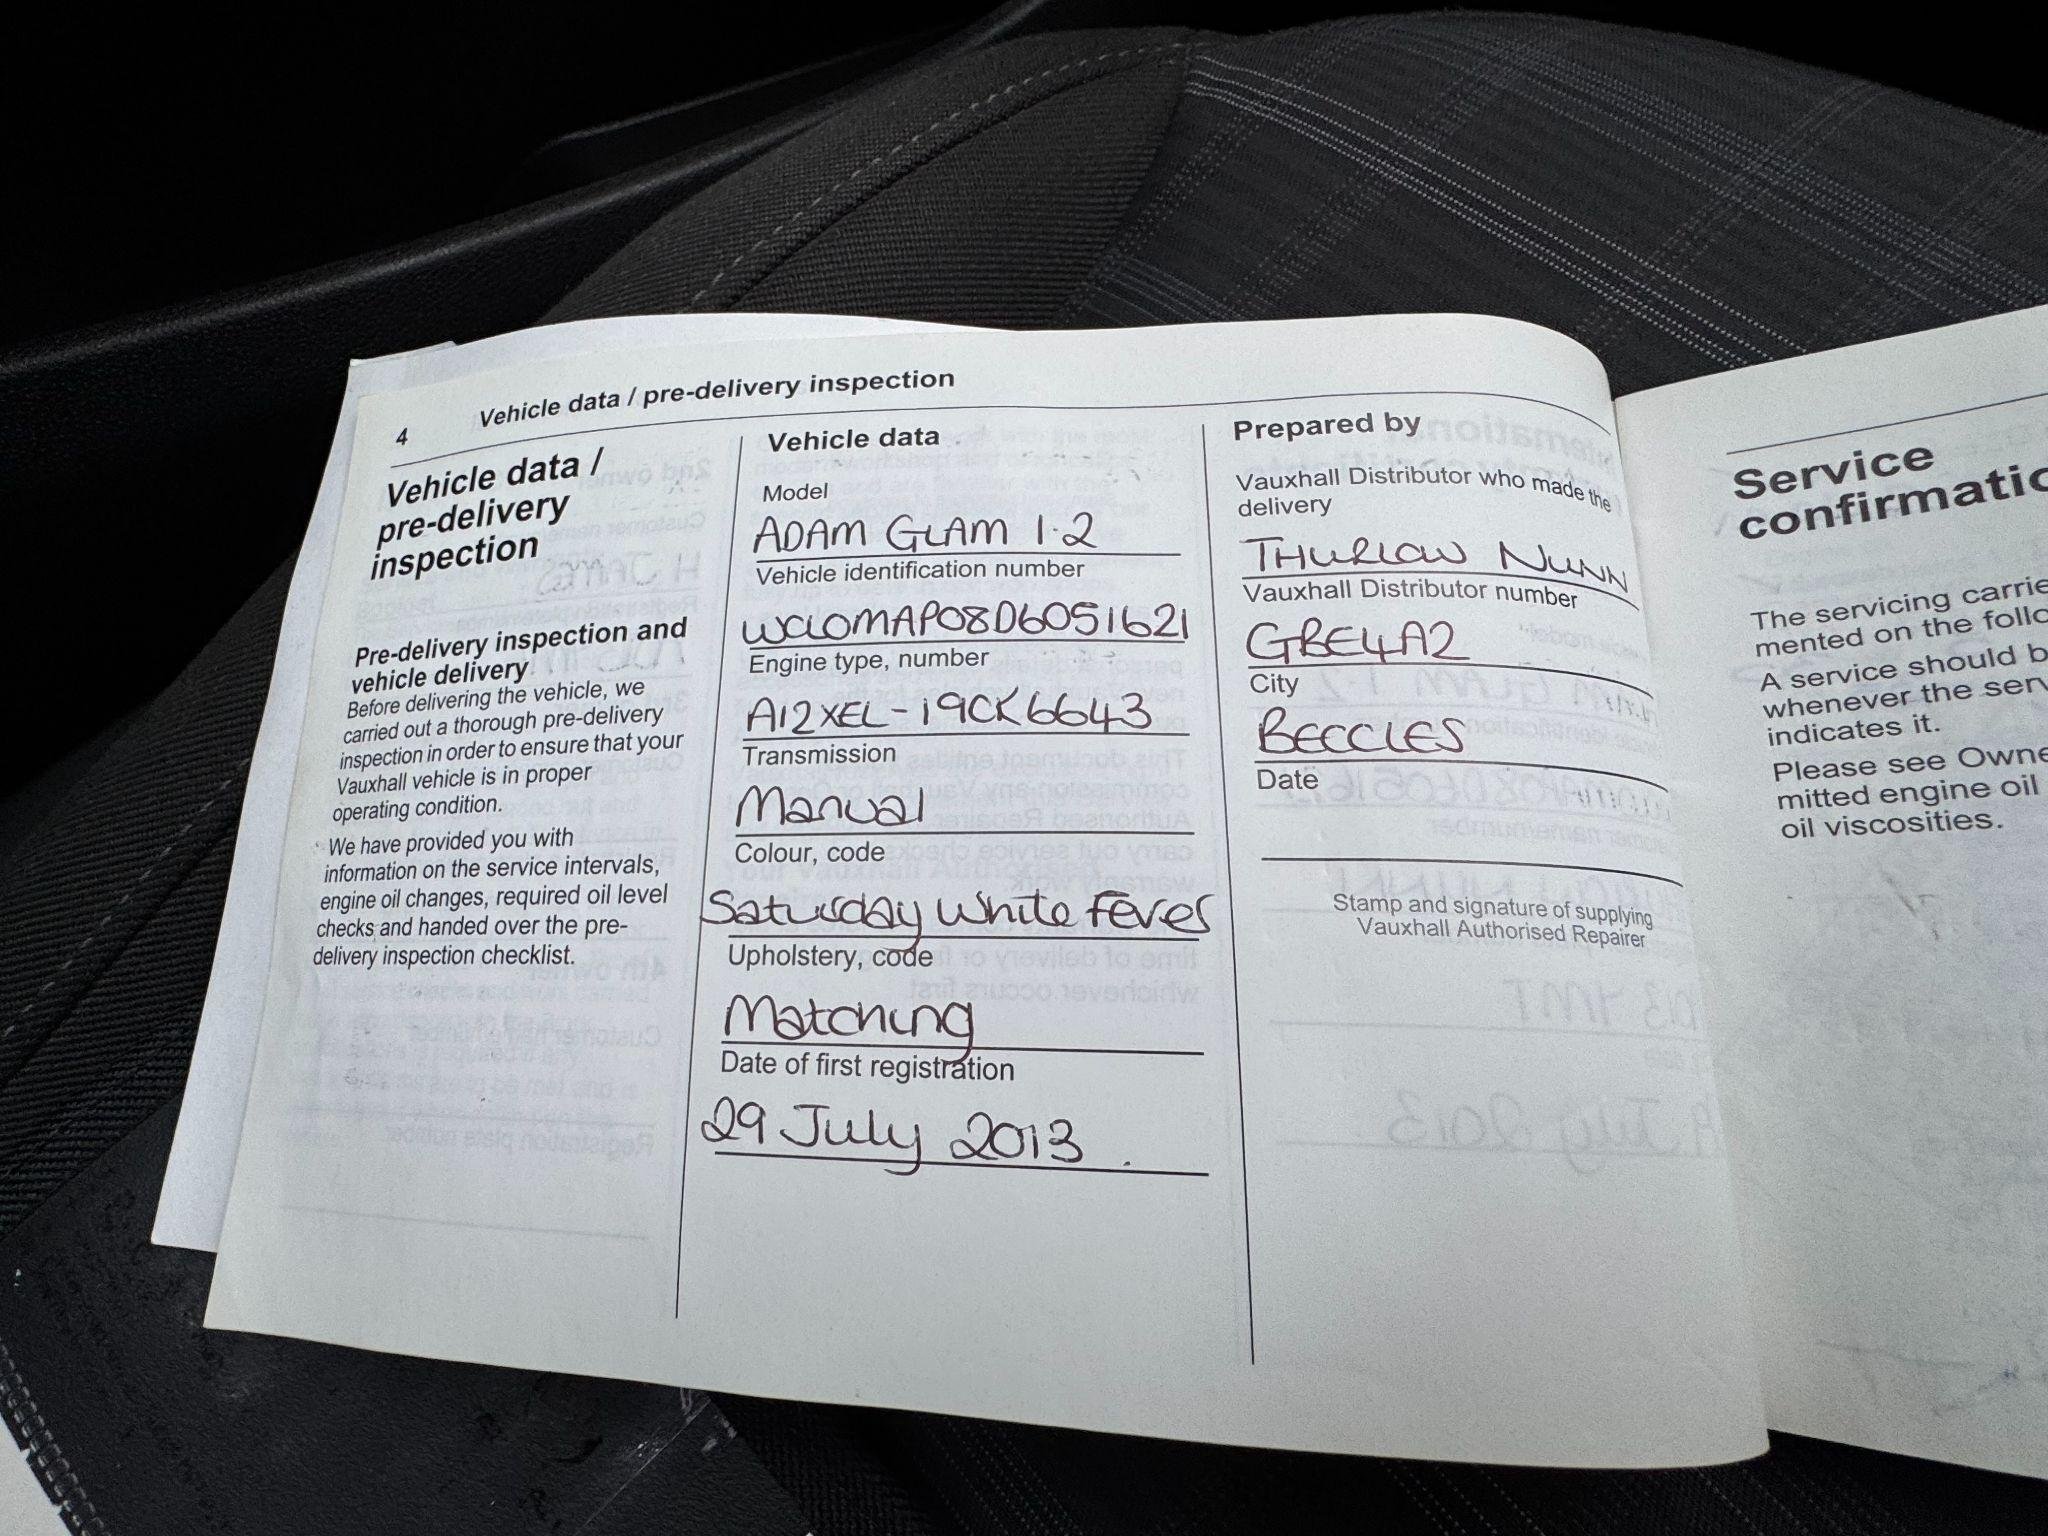 4
Vehicle data / pre-delivery inspection
Vehicle data /
pre-delivery
inspection
Pre-delivery inspection and
vehicle delivery
Before delivering the vehicle, we
carried out a thorough pre-delivery
inspection in order to ensure that your
Vauxhall vehicle is in proper
operating condition.
We have provided you with
information on the service intervals,
engine oil changes, required oil level
checks and handed over the pre-
delivery inspection checklist.
Vehicle data
Model
ADAM GLAM 1.2
Vehicle identification number
W0L0MAP08D6051621
Engine type, number
A12XEL-19CK6643
Transmission
Manual
Colour, code
Saturday White Fever
Upholstery, code
Matching
Date of first registration
29 July 2013
Prepared by
Vauxhall Distributor who made the
delivery
THURLOW NUNN
Vauxhall Distributor number
GBE4A2
City
BECCLES
Date
Stamp and signature of supplying
Vauxhall Authorised Repairer
Service
confirmatio
The servicing carrie
mented on the follo
A service should b
whenever the serv
indicates it.
Please see Owne
mitted engine oil
oil viscosities.